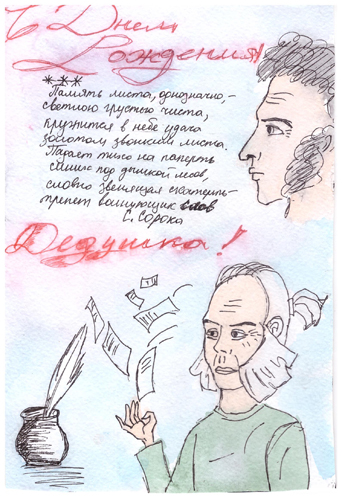 С Днем
Рождения!
***
Память листа, однозначно,-
светлою грустью чиста,
кружится в небе удача
золотом звонким листа.
Падает тихо на паперть
под дымкой лесов,
словно звенящая скатерть-
трепет волнующих слов
С. Сорока
Дедушка!